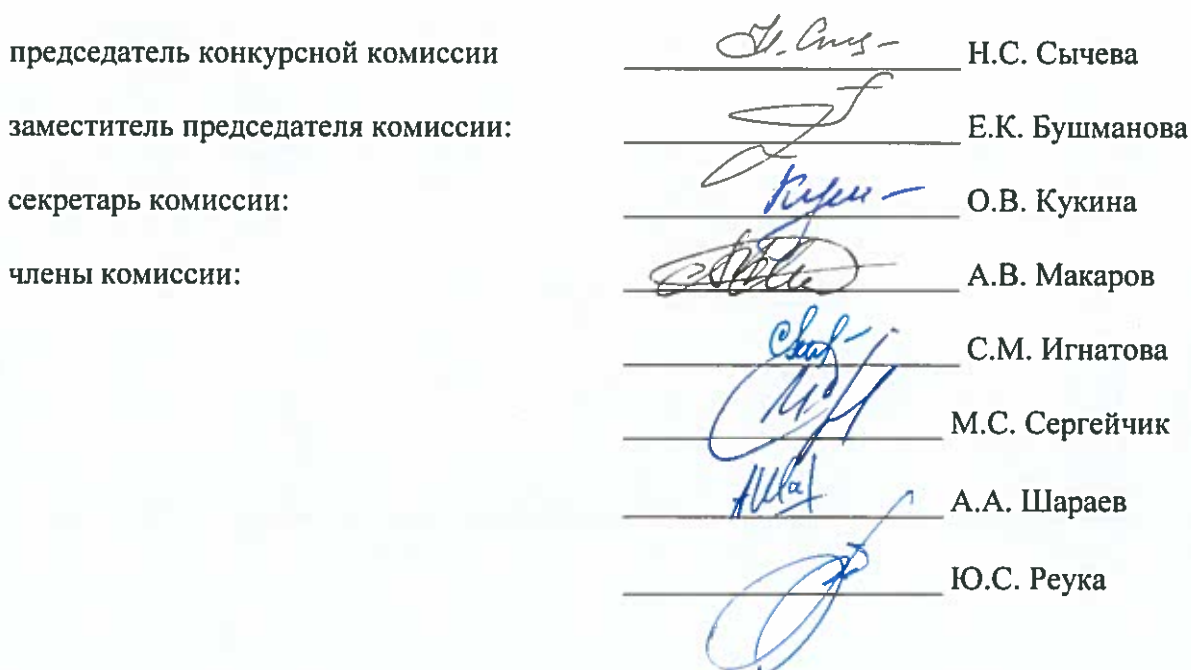 председатель конкурсной комиссии Н.С. Сычева
заместитель председателя комиссии: Е.К. Бушманова
секретарь комиссии: О.В. Кукина
члены комиссии: А.В. Макаров
С.М. Игнатова
М.С. Сергейчик
А.А. Шараев
Ю.С. Реука